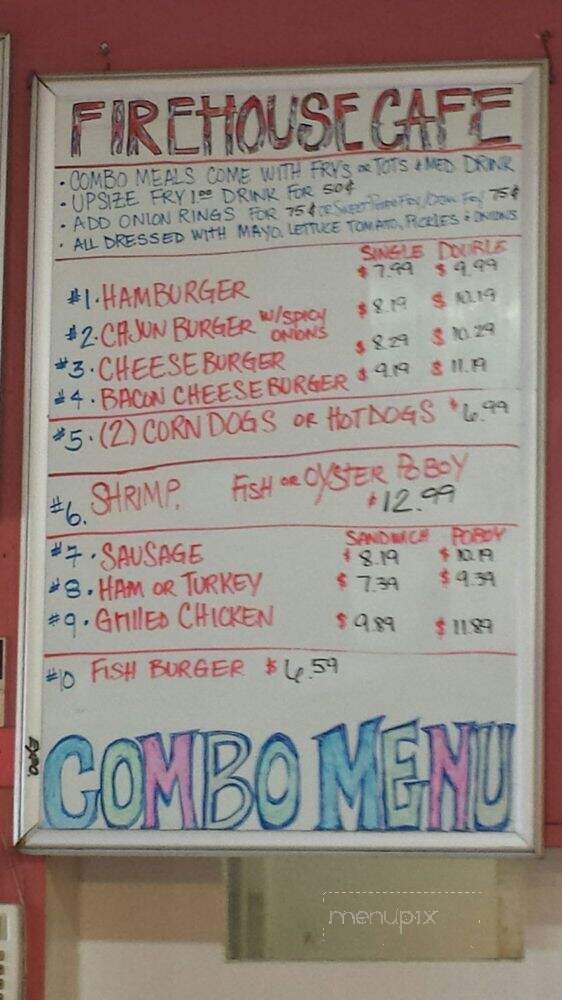 FIREHOUSE CAFE
• COMBO MEALS COME WITH FRYS OR TOTS & MED DRINK
• UPSIZE FRY 1.00 DRINK FOR 50¢
• ADD ONION RINGS FOR 75¢ OR SWEET POTATO FRY / FRY 75¢
• ALL DRESSED WITH MAYO, LETTUCE TOMATO, PICKLES & ONIONS
SINGLE DOUBLE
#1. HAMBURGER $7.99 $9.99
#2. CAJUN BURGER W/SPICY ONIONS $8.19 $10.19
#3. CHEESEBURGER $8.29 $10.29
#4. BACON CHEESEBURGER $9.19 $11.19
#5. (2) CORN DOGS OR HOTDOGS $6.99
#6. SHRIMP, FISH OR OYSTER POBOY
$12.99
SANDWICH POBOY
#7. SAUSAGE $8.19 $10.19
#8. HAM OR TURKEY $7.39 $9.39
#9. GRILLED CHICKEN $9.89 $11.89
#10 FISH BURGER $6.59
COMBO MENU
menupix